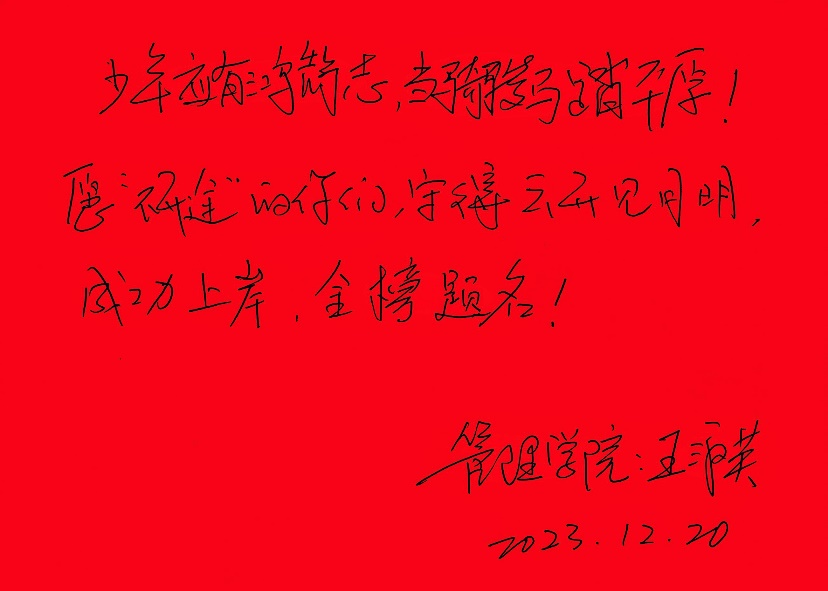 少年应有鸿鹄志,当骑骏马踏平原!
愿“研途”的你们,守得云开见月明,
成功上岸,金榜题名!
管理学院:王海英
2023.12.20